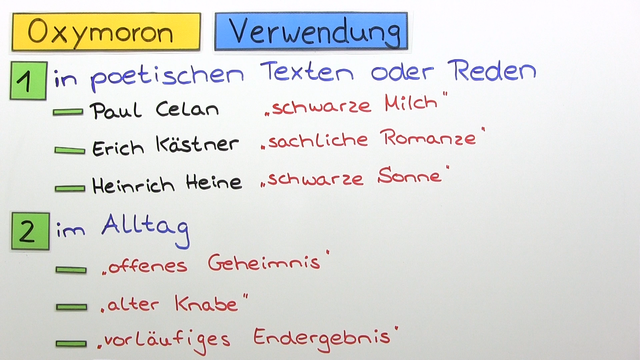 Oxymoron Verwendung
1 in poetischen Texten oder Reden
Paul Celan „schwarze Milch“
Erich Kästner „sachliche Romanze“
Heinrich Heine „schwarze Sonne“
2 im Alltag
„offenes Geheimnis“
„alter Knabe“
„vorläufiges Endergebnis“